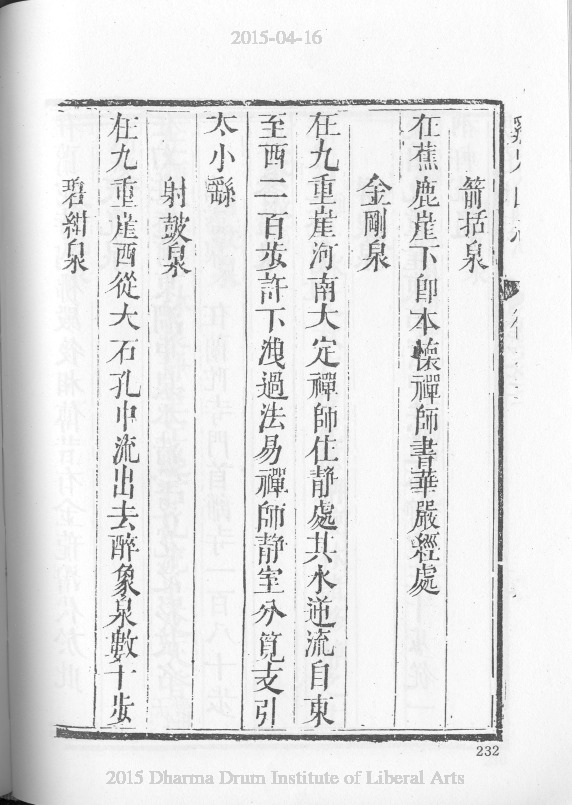 2015-04-16
箭括泉
在蕉鹿崖下卽本懷禪師書華嚴經處
金剛泉
在九重崖河南大定禪師住靜處其水逆流自東
至西二百步許下洩過法易禪師靜室分筧支引
大小縣
射鼓泉
在九重崖西從大石孔中流出去醉象泉數十步
碧紺泉
232
2015 Dharma Drum Institute of Liberal Arts